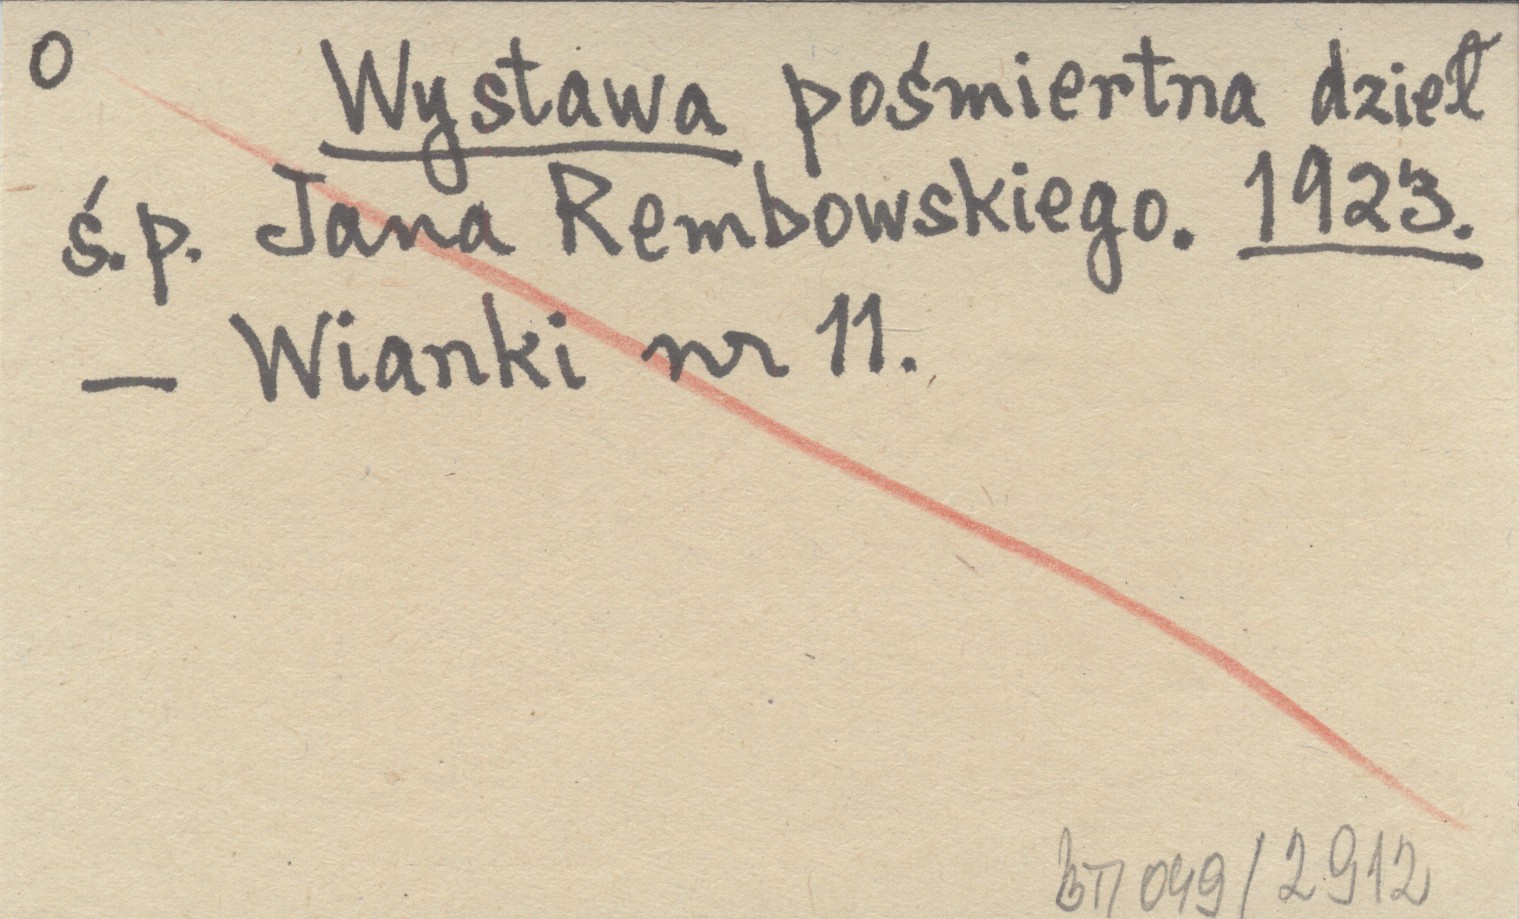 O Wystawa pośmiertna dzieł
ś.p. Jana Rembowskiego. 1923.
— Wianki nr 11.
049/2912